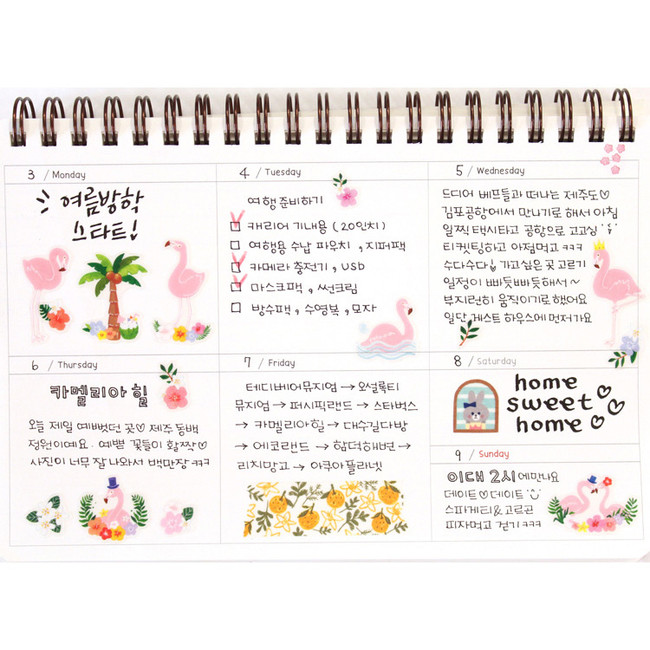 3 / Monday
여름방학
스타트!
4 / Tuesday
여행 준비하기
캐리어 기내용 (20인치)
여행용 수납 파우치, 지퍼팩
카메라 충전기, USB
마스크팩, 썬크림
방수팩, 수영복, 모자
5 / Wednesday
드디어 베프들과 떠나는 제주도♡
김포공항에서 만나기로 해서 아침
일찍 택시타고 공항으로 고고싱
티켓팅하고 아점먹고 ㅋㅋㅋ
수다수다! 가고싶은 곳 고르기
일정이 빠듯빠듯해서~
부지런히 움직이기로 했어요
일단 게스트 하우스에 먼저가요
6 / Thursday
카멜리아 힐
오늘 제일 예뻤던 곳♡ 제주 동백
정원이에요. 예쁜 꽃들이 활짝♡
사진이 너무 잘 나와서 백만장 ㅋㅋ
7 / Friday
테디베어뮤지엄 → 오설록티
뮤지엄 → 퍼시픽랜드 → 스타벅스
→ 카멜리아힐 → 대수길다방
→ 에코랜드 → 협덕해변 →
리치망고 → 아쿠아플라넷
8 / Saturday
home
sweet
home
9 / Sunday
이대 2시에 만나요
데이트♡데이트
스파게티&고르곤
피자먹고 걷기 ㅋㅋㅋ